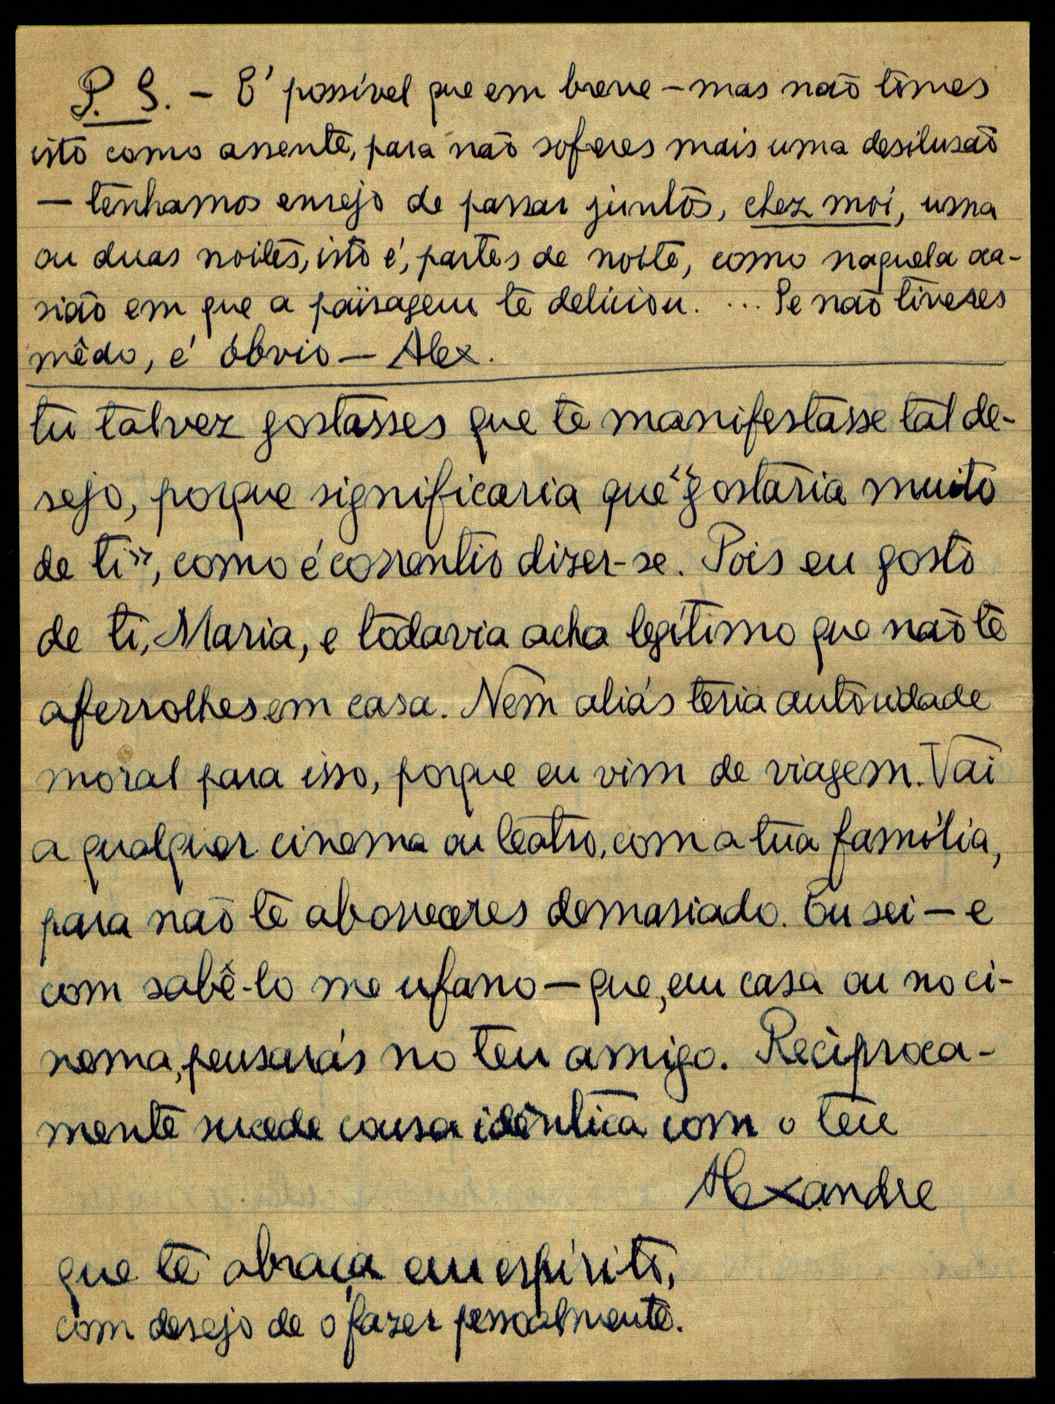 P. S. – É possível que em breve – mas não tomes
isto como assente, para não sofreres mais uma desilusão
– tenhamos ensejo de passar juntos, chez moi, uma
ou duas noites, isto é, partes de noite, como naquela oca-
sião em que a païsagem te deliciou. ... Se não tiveres
mêdo, é óbvio – Alex.
tu talvez gostasses que te manifestasse tal de-
sejo, porque significaria que "gostaria muito
de ti", como é correntio dizer-se. Pois eu gosto
de ti, Maria, e todavia acho legítimo que não te
aferrolhes em casa. Nem aliás teria autoridade
moral para isso, porque eu vim de viagem. Vai
a qualquer cinema ou teatro, com a tua família,
para não te aborreceres demasiado. Eu sei – e
com sabê-lo me ufano – que, em casa ou no ci-
nema, pensarás no teu amigo. Recìproca-
mente sucede cousa idêntica com o teu
Alexandre
que te abraça em espírito,
com desejo de o fazer pessoalmente.